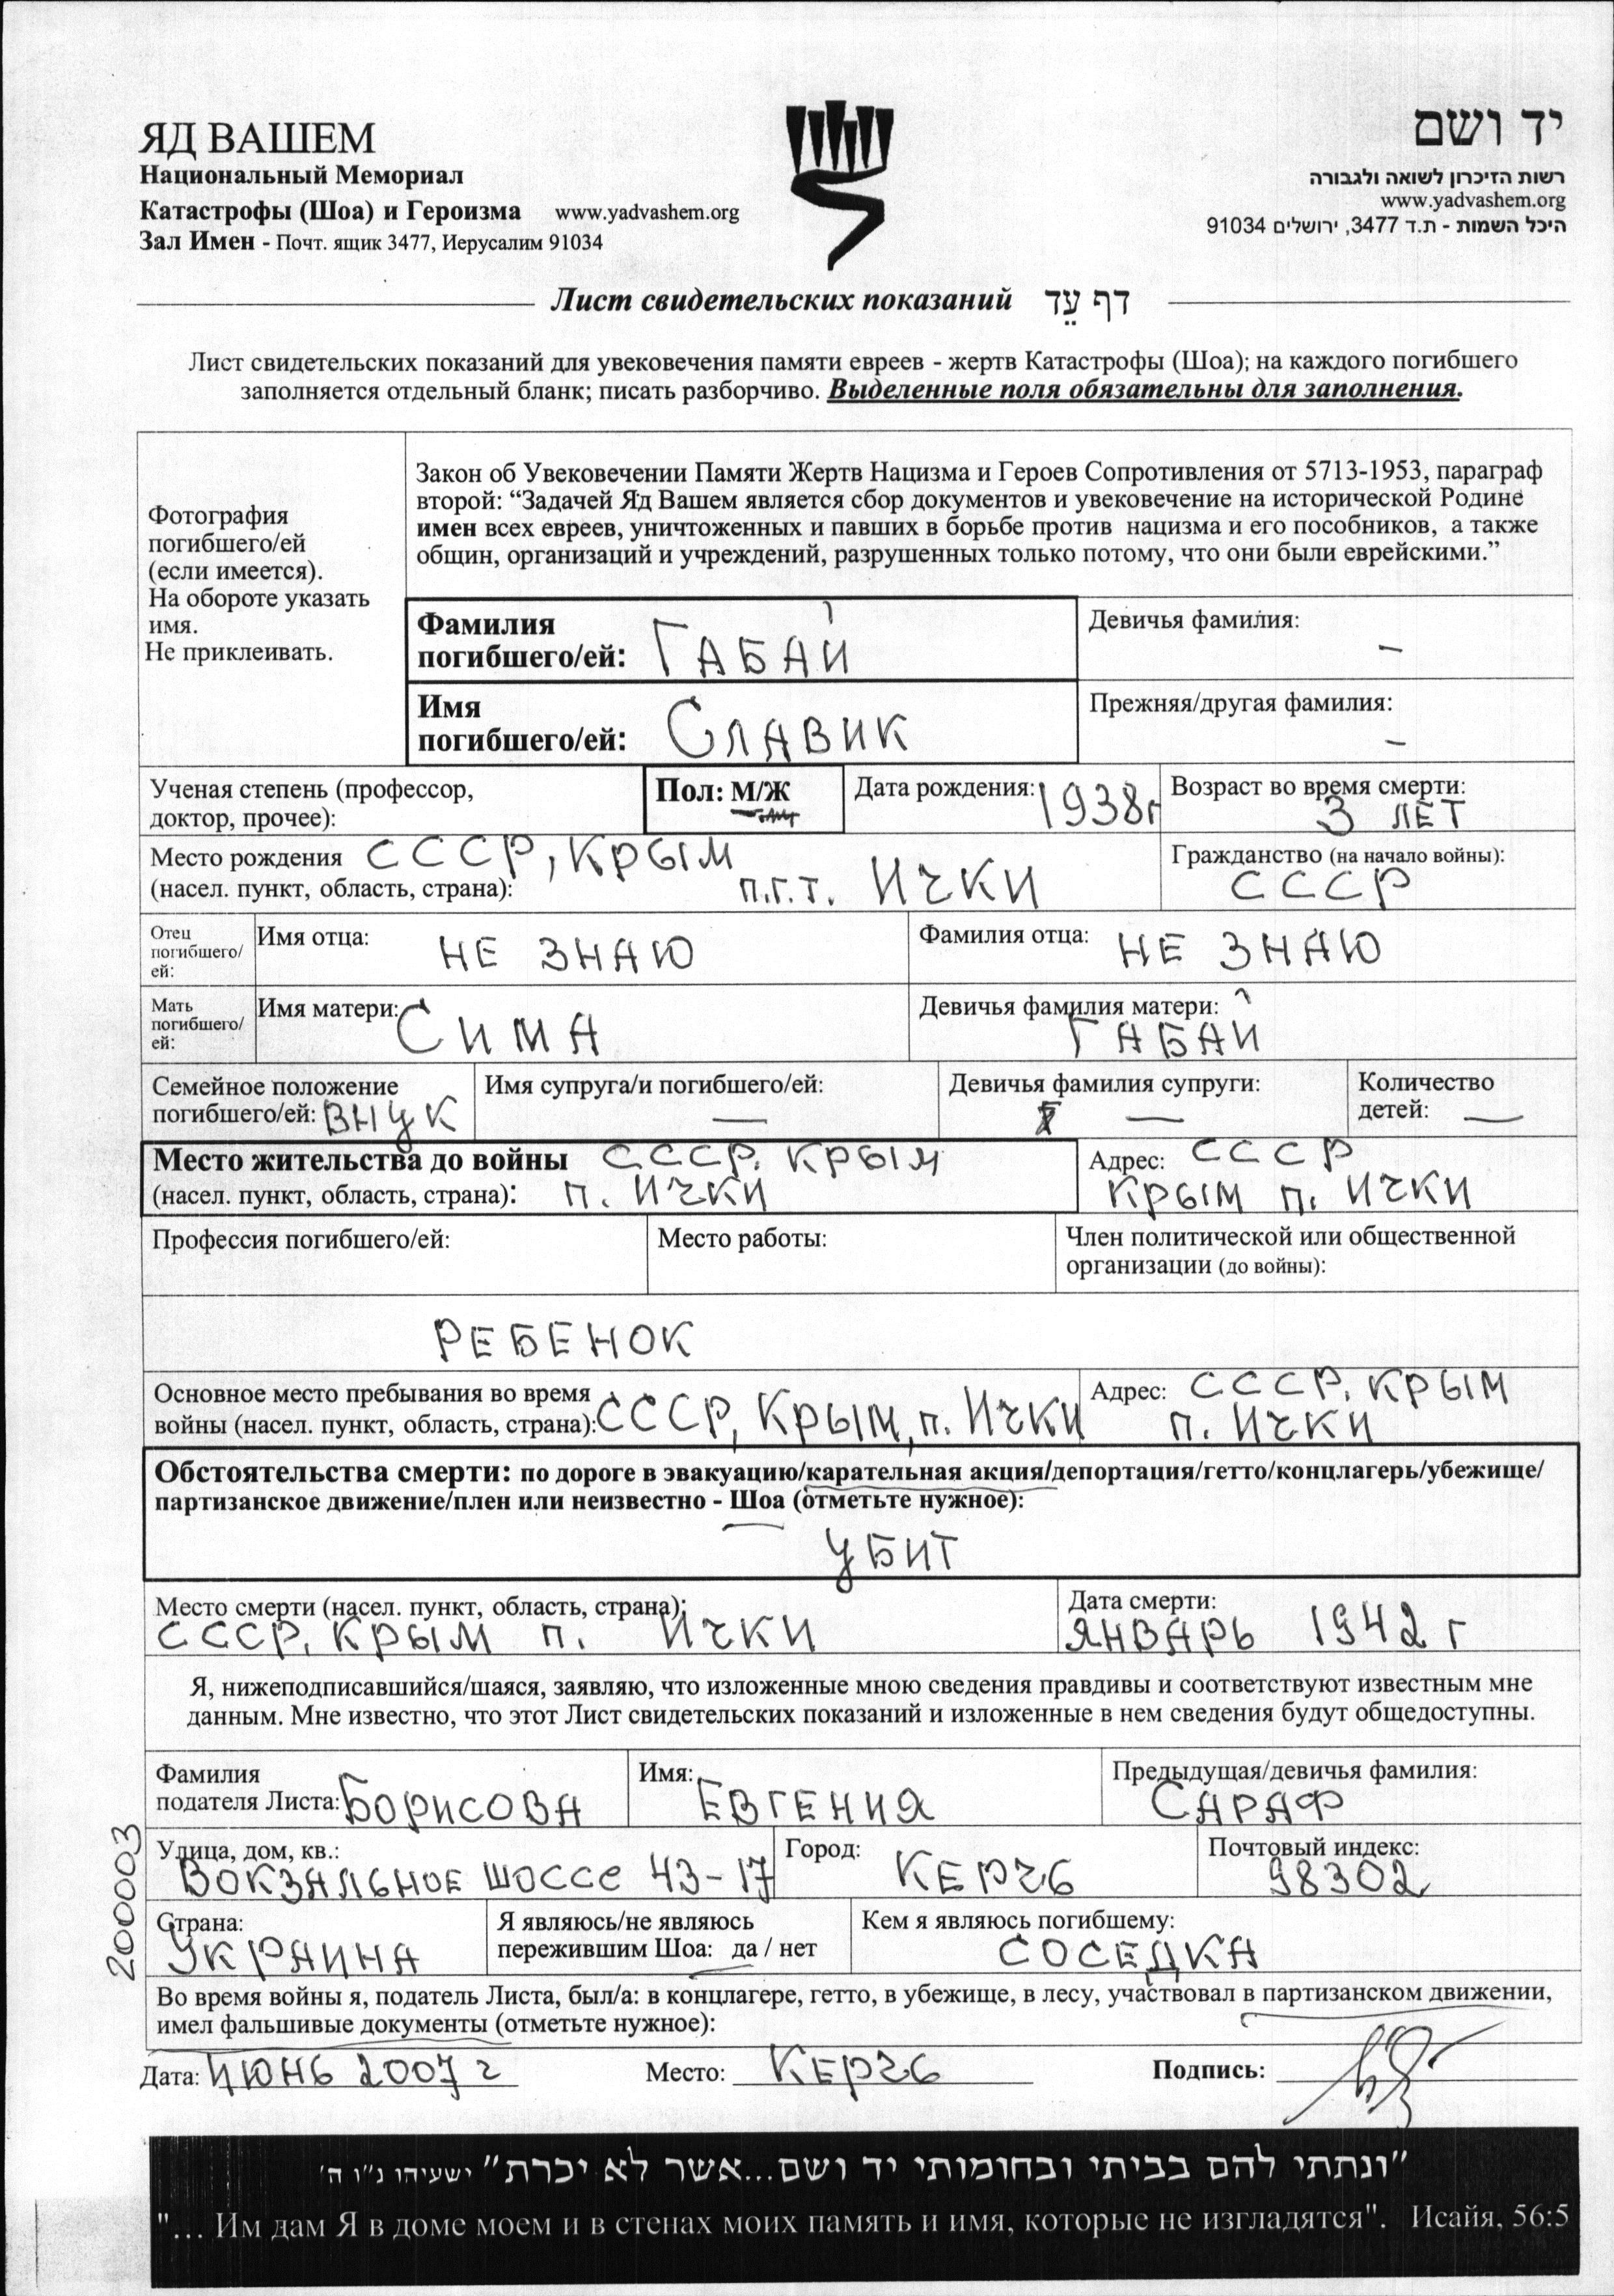 ЯД ВАШЕМ
Национальный Мемориал
Катастрофы (Шоа) и Героизма www.yadvashem.org
Зал Имен - Почт. ящик 3477, Иерусалим 91034
יד ושם
רשות הזיכרון לשואה ולגבורה
www.yadvashem.org
היכל השמות - ת.ד 3477, ירושלים 91034
Лист свидетельских показаний דף עֵד
Лист свидетельских показаний для увековечения памяти евреев - жертв Катастрофы (Шоа); на каждого погибшего
заполняется отдельный бланк; писать разборчиво. Выделенные поля обязательны для заполнения.
Фотография
погибшего/ей
(если имеется).
На обороте указать
имя.
Не приклеивать.
Закон об Увековечении Памяти Жертв Нацизма и Героев Сопротивления от 5713-1953, параграф
второй: “Задачей Яд Вашем является сбор документов и увековечение на исторической Родине
имен всех евреев, уничтоженных и павших в борьбе против нацизма и его пособников, а также
общин, организаций и учреждений, разрушенных только потому, что они были еврейскими.”
Фамилия
погибшего/ей: ГАБАЙ
Девичья фамилия: –
Имя
погибшего/ей: СЛАВИК
Прежняя/другая фамилия: –
Ученая степень (профессор,
доктор, прочее):
Пол: М/Ж
Дата рождения: 1938г
Возраст во время смерти:
3 ЛЕТ
Место рождения СССР, КРЫМ
(насел. пункт, область, страна): п.г.т. ИЧКИ
Гражданство (на начало войны):
СССР
Отец
погибшего/
ей:
Имя отца: НЕ ЗНАЮ
Фамилия отца: НЕ ЗНАЮ
Мать
погибшего/
ей:
Имя матери: СИМА
Девичья фамилия матери:
ГАБАЙ
Семейное положение
погибшего/ей: ВНУК
Имя супруга/и погибшего/ей:
—
Девичья фамилия супруги:
—
Количество
детей: —
Место жительства до войны СССР. КРЫМ
(насел. пункт, область, страна): п. ИЧКИ
Адрес: СССР
КРЫМ п. ИЧКИ
Профессия погибшего/ей:
Место работы:
Член политической или общественной
организации (до войны):
РЕБЕНОК
Основное место пребывания во время
войны (насел. пункт, область, страна): СССР, КРЫМ, п. ИЧКИ
Адрес: СССР. КРЫМ
п. ИЧКИ
Обстоятельства смерти: по дороге в эвакуацию/карательная акция/депортация/гетто/концлагерь/убежище/
партизанское движение/плен или неизвестно - Шоа (отметьте нужное):
УБИТ
Место смерти (насел. пункт, область, страна):
СССР, КРЫМ п. ИЧКИ
Дата смерти:
ЯНВАРЬ 1942 г
Я, нижеподписавшийся/шаяся, заявляю, что изложенные мною сведения правдивы и соответствуют известным мне
данным. Мне известно, что этот Лист свидетельских показаний и изложенные в нем сведения будут общедоступны.
Фамилия
подателя Листа: БОРИСОВА
Имя: ЕВГЕНИЯ
Предыдущая/девичья фамилия:
САРАФ
Улица, дом, кв.:
ВОКЗАЛЬНОЕ ШОССЕ 43-17
Город: КЕРЧЬ
Почтовый индекс:
98302
2000003
Страна:
УКРАИНА
Я являюсь/не являюсь
пережившим Шоа: да / нет
Кем я являюсь погибшему:
СОСЕДКА
Во время войны я, податель Листа, был/а: в концлагере, гетто, в убежище, в лесу, участвовал в партизанском движении,
имел фальшивые документы (отметьте нужное):
Дата: ИЮНЬ 2007 г Место: КЕРЧЬ Подпись:
“ונתתי להם בביתי ובחומותי יד ושם...אשר לא יכרת” ישעיהו נ"ו ה'
"... Им дам Я в доме моем и в стенах моих память и имя, которые не изгладятся". Исайя, 56:5